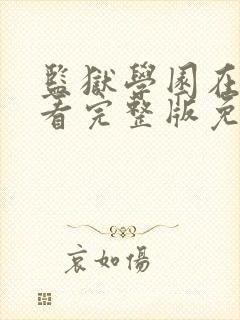 監獄學園在
看完整版免
哀如傷